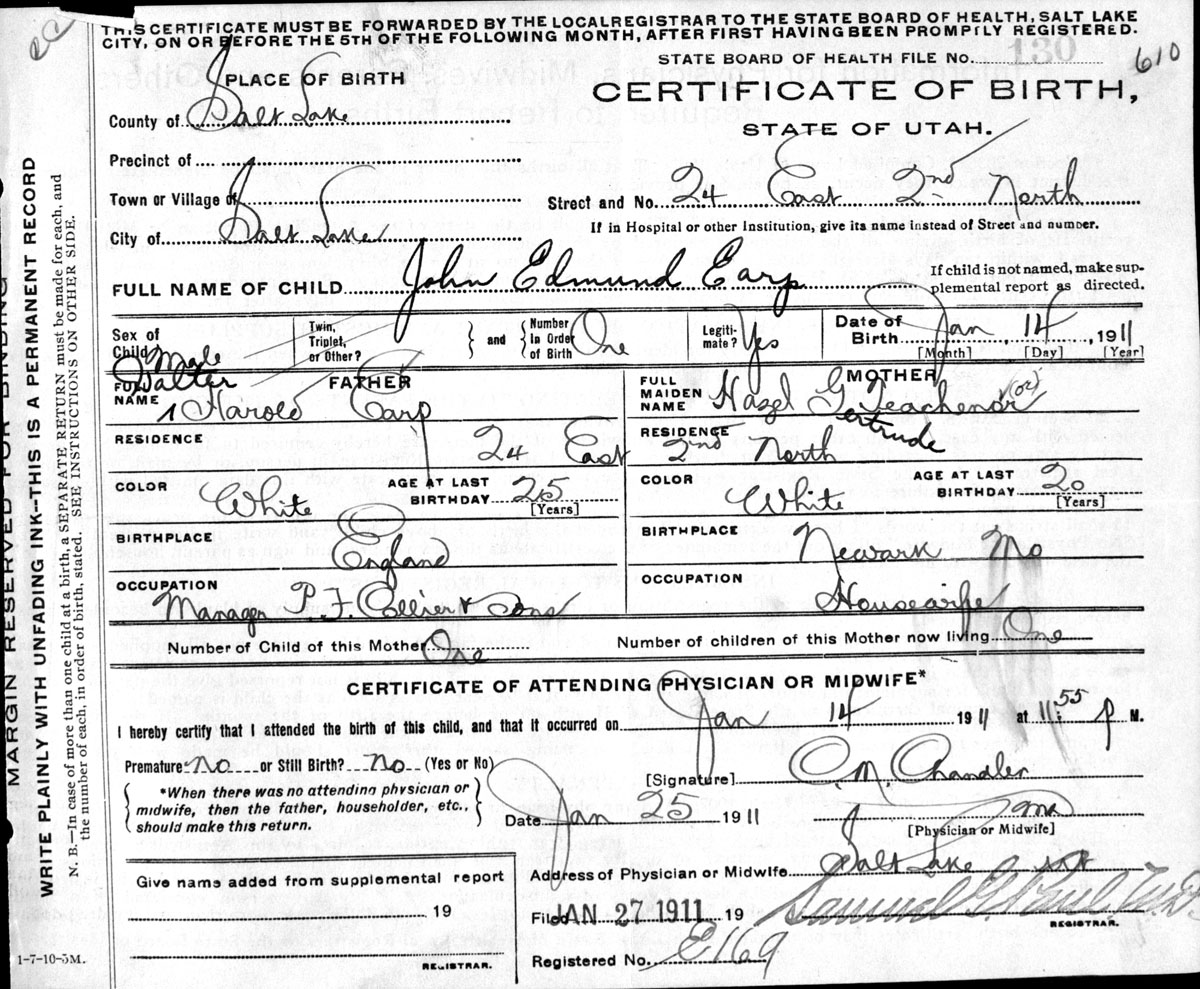 THIS CERTIFICATE MUST BE FORWARDED BY THE LOCALREGISTRAR TO THE STATE BOARD OF HEALTH, SALT LAKE
CITY, ON OR BEFORE THE 5TH OF THE FOLLOWING MONTH, AFTER FIRST HAVING BEEN PROMPTLY REGISTERED.
STATE BOARD OF HEALTH FILE NO. 130 610
PLACE OF BIRTH
CERTIFICATE OF BIRTH,
STATE OF UTAH.
County of Salt Lake
Precinct of
Town or Village of
Street and No. 24 East 2nd North
City of Salt Lake
If in Hospital or other Institution, give its name instead of Street and number.
FULL NAME OF CHILD John Edmund Earp
If child is not named, make sup-
plemental report as directed.
Sex of Child Male
Twin, Triplet, or Other?
and Number In Order of Birth One
Legiti-mate? Yes
Date of Birth Jan 14, 1911
[Month] [Day] [Year]
FATHER
FULL NAME Walter Harold Earp
MOTHER
FULL MAIDEN NAME Hazel Gertrude Teachenor (or)
RESIDENCE 24 East
RESIDENCE 2nd North
COLOR White
AGE AT LAST BIRTHDAY 25
[Years]
COLOR White
AGE AT LAST BIRTHDAY 20
[Years]
BIRTHPLACE England
BIRTHPLACE Newark Mo
OCCUPATION Manager P. F. Collier & Sons
OCCUPATION Housewife
Number of Child of this Mother One
Number of children of this Mother now living One
CERTIFICATE OF ATTENDING PHYSICIAN OR MIDWIFE*
I hereby certify that I attended the birth of this child, and that it occurred on Jan 14 1911 at 11:55 P M.
Premature? No or Still Birth? No (Yes or No)
[Signature] C. M. Chandler
*When there was no attending physician or
midwife, then the father, householder, etc.,
should make this return.
Date Jan 25 1911
[Physician or Midwife]
Give name added from supplemental report
19
REGISTRAR.
Address of Physician or Midwife Salt Lake
Filed JAN 27 1911 19
REGISTRAR.
Registered No. E169
1-7-10-5M.
MARGIN RESERVED FOR BINDING
WRITE PLAINLY WITH UNFADING INK—THIS IS A PERMANENT RECORD
N. B.—In case of more than one child at a birth, a SEPARATE RETURN must be made for each, and
the number of each, in order of birth, stated. SEE INSTRUCTIONS ON OTHER SIDE.